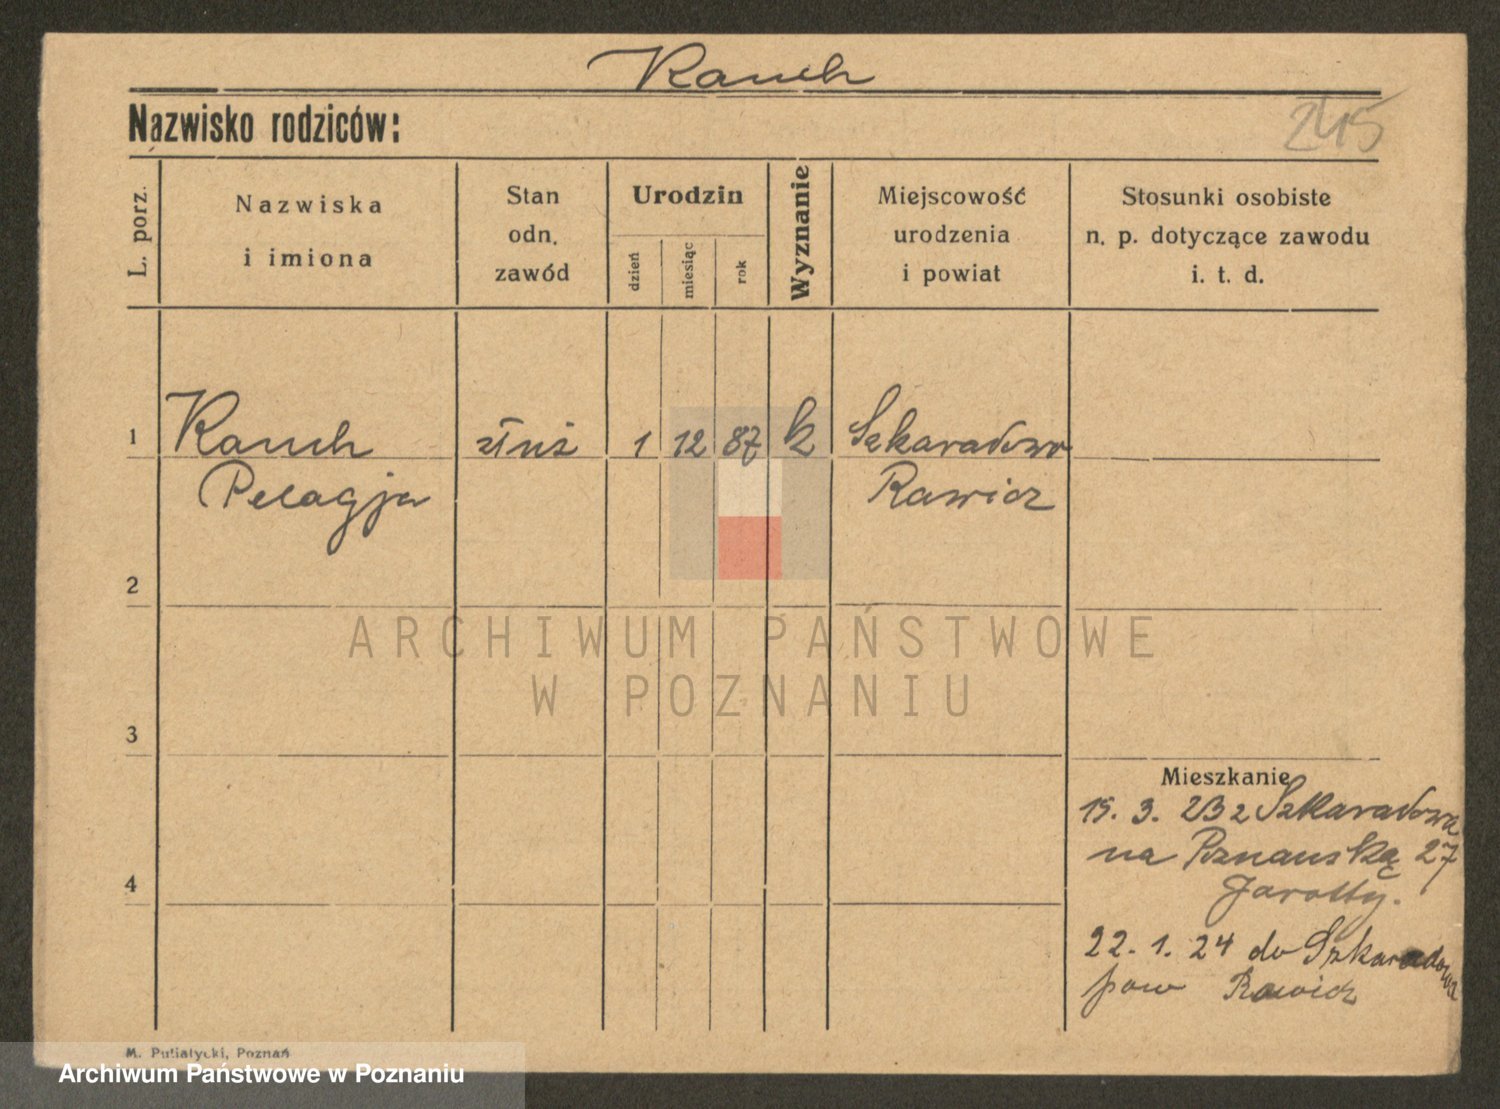 Rauch
Nazwisko rodziców:
245
L. porz.
Nazwiska
i imiona
Stan
odn.
zawód
Urodzin
dzień
miesiąc
rok
Wyznanie
Miejscowość
urodzenia
i powiat
Stosunki osobiste
n. p. dotyczące zawodu
i. t. d.
1 Rauch służ 1 12 87 k Szkaradowo
Pelagja Rawicz
2
ARCHIWUM PAŃSTWOWE
W POZNANIU
3
Mieszkanie
15. 3. 23 z Szkaradowa
na Poznańską 27
4
22. 1. 24 do Szkaradowa
pow Rawicz
M. Putiatycki, Poznań
Archiwum Państwowe w Poznaniu